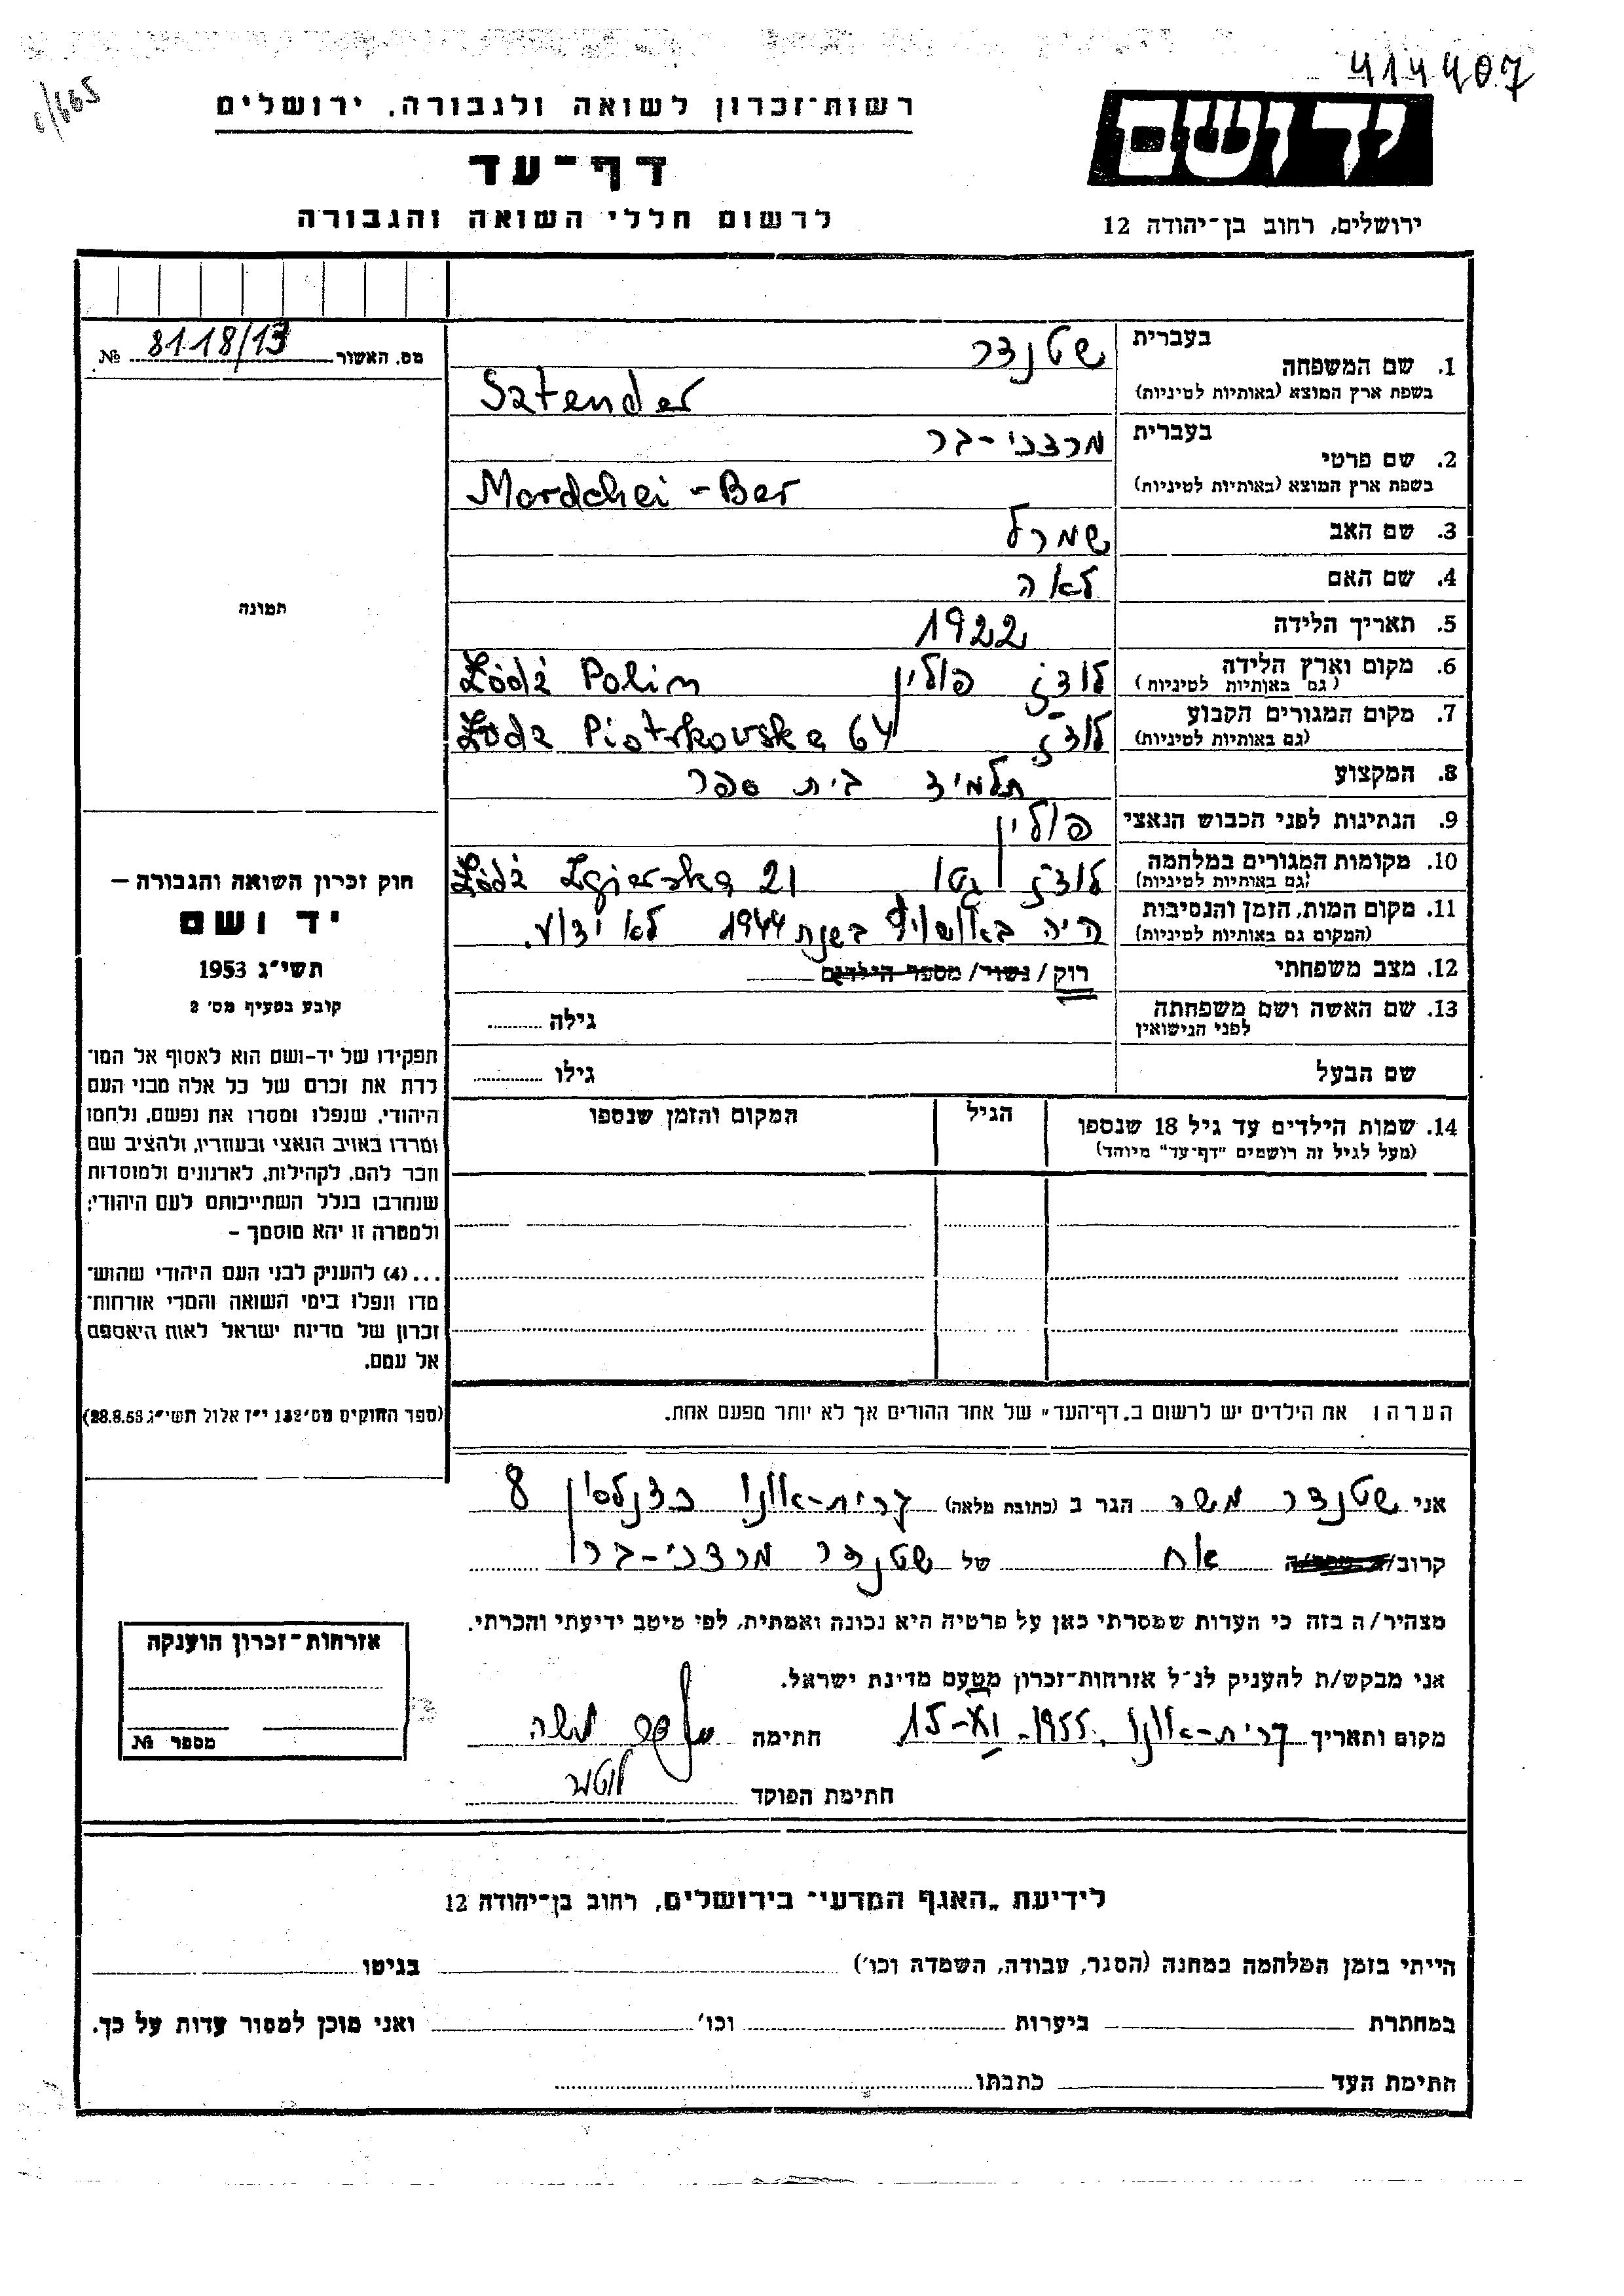 414407
ס/665
יד ושם
ירושלים, רחוב בן-יהודה 12
רשות-זכרון לשואה ולגבורה, ירושלים
דף-עד
לרשום חללי השואה והגבורה
מס. האשור 8118/13 №
תמונה
חוק זכרון השואה והגבורה –
יד ושם
תשי"ג 1953
קובע בסעיף מס' 2
תפקידו של יד-ושם הוא לאסוף אל המו־
לדת את זכרם של כל אלה מבני העם
היהודי, שנפלו ומסרו את נפשם, נלחמו
ומרדו באויב הנאצי ובעוזריו, ולהציב שם
וזכר להם, לקהילות, לארגונים ולמוסדות
שנחרבו בגלל השתייכותם לעם היהודי;
ולמטרה זו יהא מוסמך –
...(4) להעניק לבני העם היהודי שהוש־
מדו ונפלו בימי השואה והמרי אזרחות־
זכרון של מדינת ישראל לאות היאספם
אל עמם.
(ספר החוקים מס' 132 י"ז אלול תשי"ג 28.8.53)
1. שם המשפחה בעברית שטנדר
בשפת ארץ המוצא (באותיות לטיניות) Sztender
2. שם פרטי בעברית מרדכי-בר
בשפת ארץ המוצא (באותיות לטיניות) Mordchei-Ber
3. שם האב שמרל
4. שם האם לאה
5. תאריך הלידה 1922
6. מקום וארץ הלידה (גם באותיות לטיניות) לודז פולין Łódź Polin
7. מקום המגורים הקבוע (גם באותיות לטיניות) לודז Łódź Piotrkovska 64
8. המקצוע תלמיד בית ספר
9. הנתינות לפני הכבוש הנאצי פולין
10. מקומות המגורים במלחמה (גם באותיות לטיניות) לודז גטו Łódź Zgierska 21
11. מקום המות, הזמן והנסיבות (המקום גם באותיות לטיניות) היה באושויץ בשנת 1944 לא ידוע.
12. מצב משפחתי רוק / נשוי / מספר הילדים
13. שם האשה ושם משפחתה לפני הנישואין גילה
שם הבעל גילו
14. שמות הילדים עד גיל 18 שנספו הגיל המקום והזמן שנספו
(מעל לגיל זה רושמים "דף-עד" מיוחד)
הערה: את הילדים יש לרשום ב"דף-העד" של אחד ההורים אך לא יותר מפעם אחת.
אני שטנדר משה הגר ב (כתובת מלאה) קרית-אונו כצנלסון 8
קרוב/ה אח של שטנדר מרדכי-בר
מצהיר/ה בזה כי העדות שמסרתי כאן על פרטיה היא נכונה ואמתית, לפי מיטב ידיעתי והכרתי.
אני מבקש/ת להעניק לנ"ל אזרחות-זכרון מטעם מדינת ישראל.
מקום ותאריך קרית-אונו 15-XI-1955. חתימה שטנדר משה
חתימת הפוקד
אזרחות-זכרון הוענקה
מספר №
לידיעת "האגף המדעי" בירושלים, רחוב בן-יהודה 12
הייתי בזמן המלחמה במחנה (הסגר, עבודה, השמדה וכו') בגיטו
במחתרת ביערות וכו' ואני מוכן למסור עדות על כך.
חתימת העד כתבתו